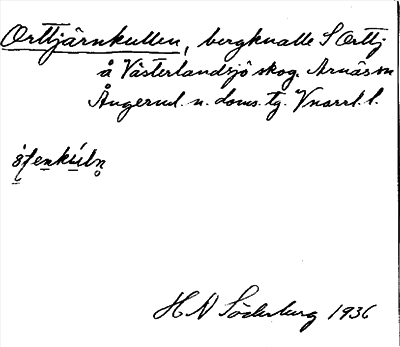 Orttjärnkullen, bergknalle S Orttj
å Västerlandsjö skog. Arnäs sn
Ångerml. n. doms. tg. Vnorrl. l.
H N Söderburg 1936